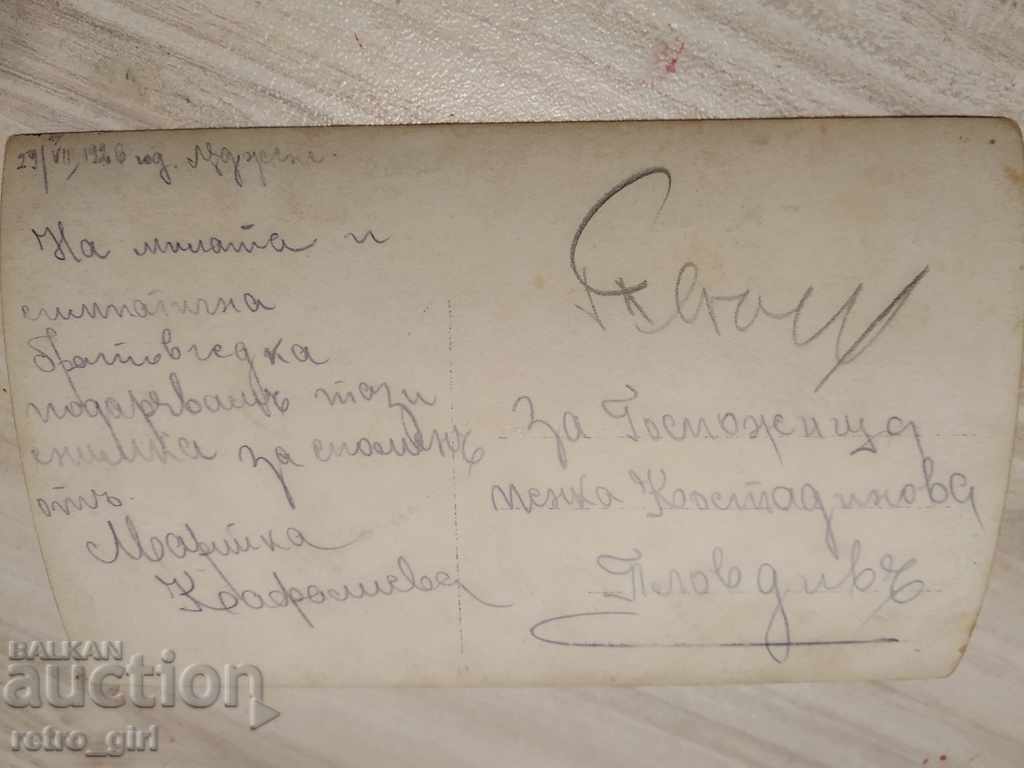 29/VII, 1926 год. Лъджене.
На милата и
симпатична
братовчедка
подарявамъ този
снимка за споменъ
отъ.
Марийка
За Госпожица
пенка Костадинова
Пловдивъ
BALKAN
auction
retro_girl